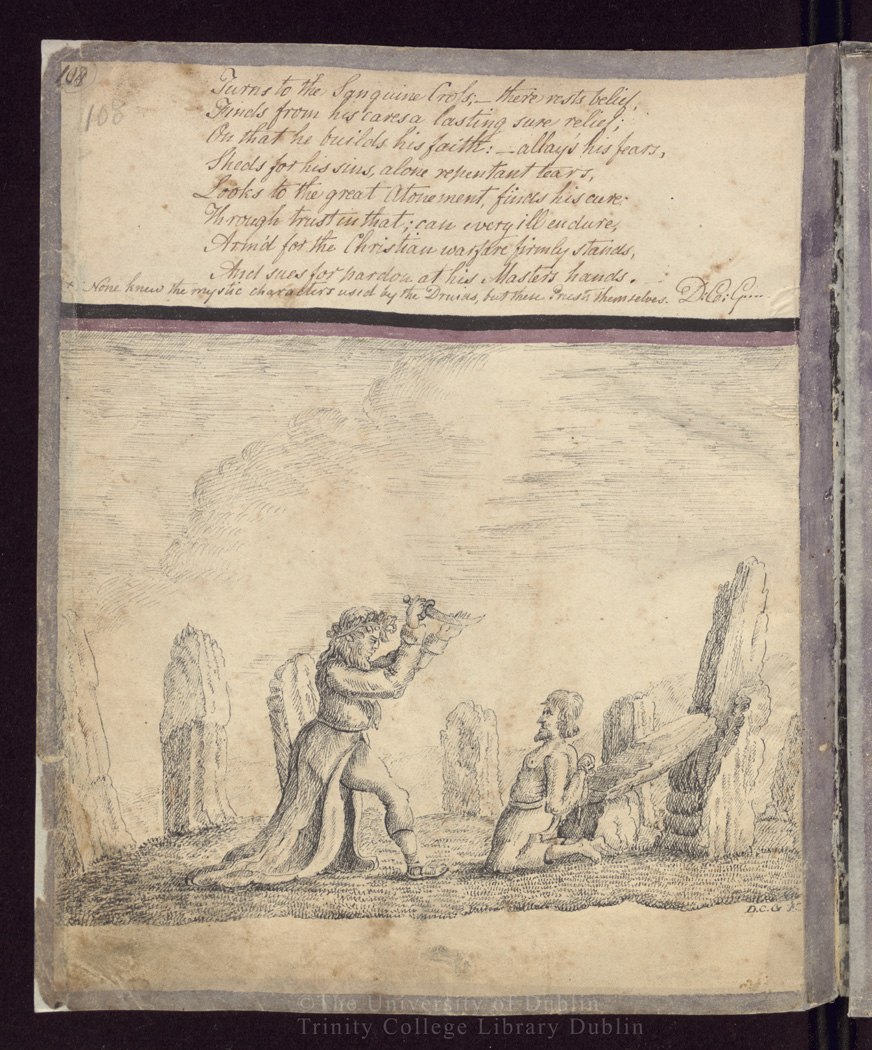 108
108
Turns to the Sanguine Cross; — there rests belief,
Finds from his cares a lasting sure relief;
On that he builds his faith: — allays his fears,
Sheds for his sins, alone repentant tears,
Looks to the great Atonement, finds his cure.
Through trust in that; can every ill endure,
Arm'd for the Christian warfare firmly stands,
And sues for pardon at his Masters hands.
+ None knew the mystic characters used by the Druids, but their Priests themselves. D: C: G....
D. C. G
©The University of Dublin
Trinity College Library Dublin